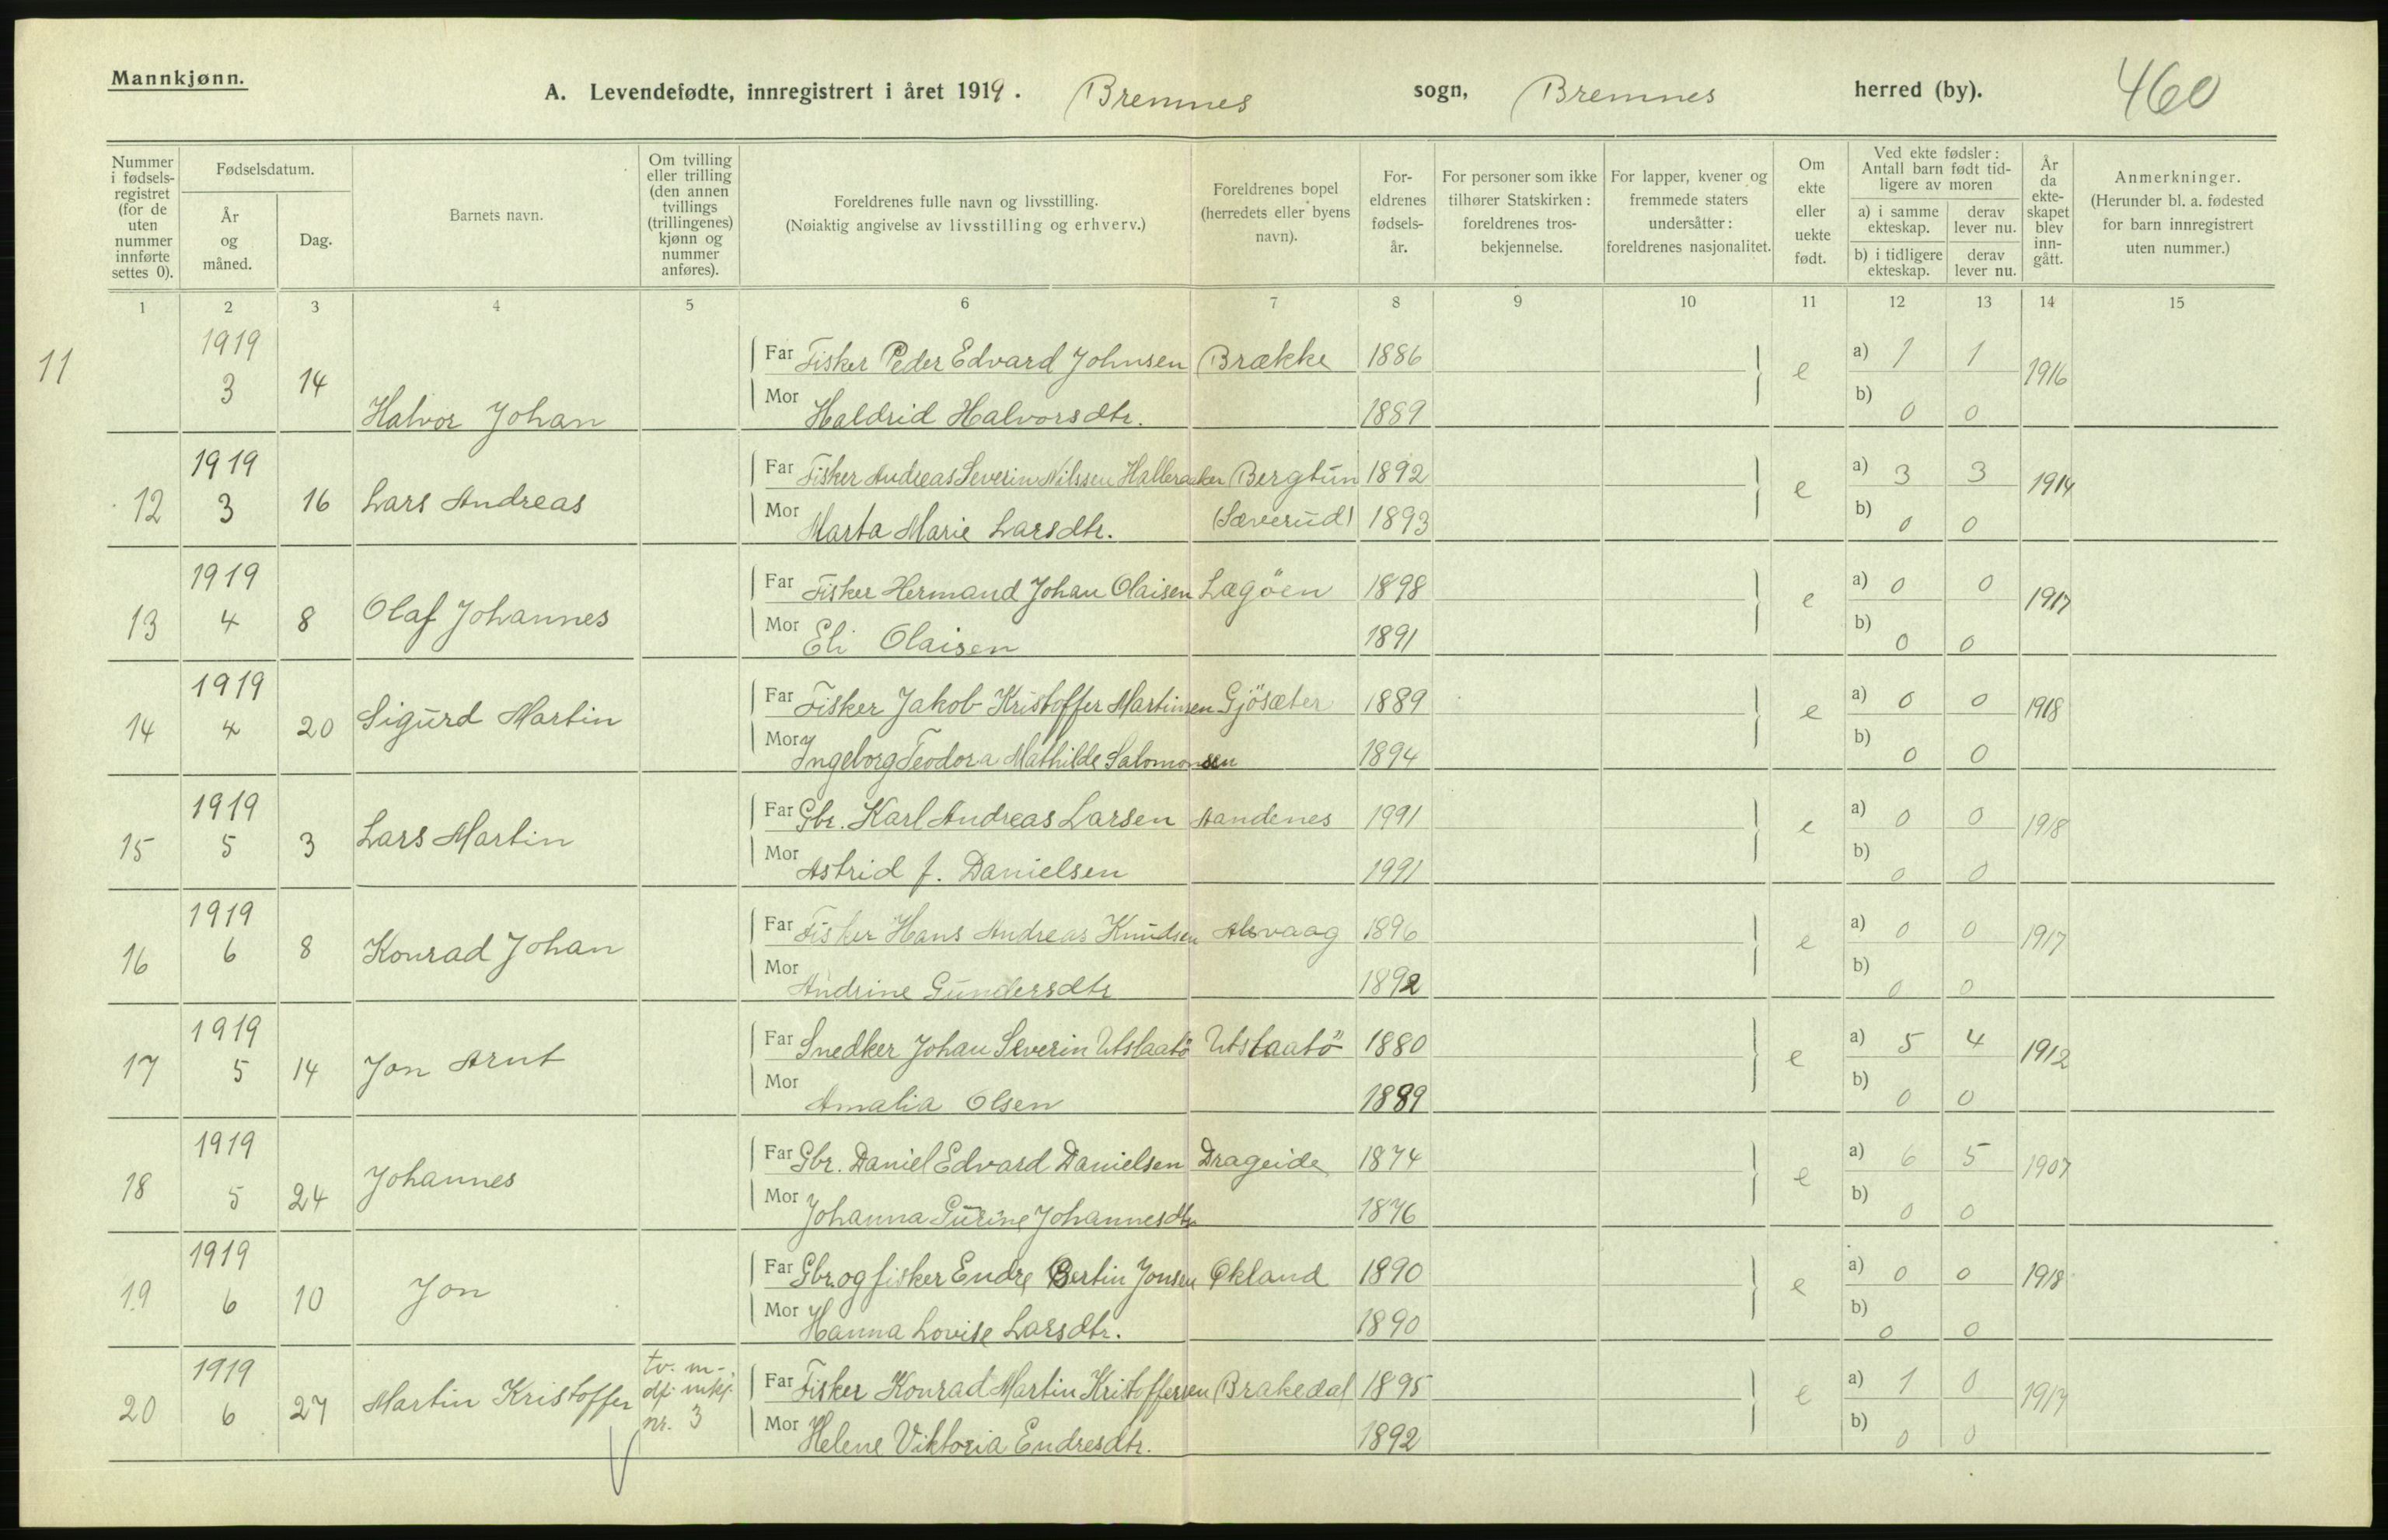 Mannkjønn.
A. Levendefødte, innregistrert i året 1919. Bremnes sogn, Bremnes herred (by). 460
Nummer i fødsels-registret (for de uten nummer innførte settes 0).
Fødselsdatum.
År og måned.
Dag.
Barnets navn.
Om tvilling eller trilling (den annen tvillings (trillingenes) kjønn og nummer anføres).
Foreldrenes fulle navn og livsstilling.
(Nøiaktig angivelse av livsstilling og erhverv.)
Foreldrenes bopel (herredets eller byens navn).
For-eldrenes fødsels-år.
For personer som ikke tilhører Statskirken: foreldrenes tros-bekjennelse.
For lapper, kvener og fremmede staters undersåtter: foreldrenes nasjonalitet.
Om ekte eller uekte født.
Ved ekte fødsler: Antall barn født tid-ligere av moren
a) i samme ekteskap. derav lever nu.
b) i tidligere ekteskap. derav lever nu.
År da ekte-skapet blev inn-gått.
Anmerkninger.
(Herunder bl. a. fødested for barn innregistrert uten nummer.)
1 2 3 4 5 6 7 8 9 10 11 12 13 14 15
11 1919 3 14 Halvor Johan
Far Fisker Peder Edvard Johnsen Brække 1886 e a) 1 1 1916
Mor Haldrid Halvorsdtr. 1889 b) 0 0
12 1919 3 16 Lars Andreas
Far Fisker Andreas Severin Nilssen Halleraker Bergtun 1892 e a) 3 3 1914
Mor Marta Marie Larsdtr. (Sæverud) 1893 b) 0 0
13 1919 4 8 Olaf Johannes
Far Fisker Hermand Johan Olaisen Lægöen 1898 e a) 0 0 1917
Mor Eli Olaisen 1891 b) 0 0
14 1919 4 20 Sigurd Martin
Far Fisker Jakob Kristoffer Martinsen Gjösæter 1889 e a) 0 0 1918
Mor Ingeborg Teodora Mathilde Salomonsen 1894 b) 0 0
15 1919 5 3 Lars Martin
Far Gbr. Karl Andreas Larsen Aandenes 1991 e a) 0 0 1918
Mor Astrid f. Danielsen 1991 b) 0 0
16 1919 6 8 Konrad Johan
Far Fisker Hans Andreas Knudsen Alsvaag 1896 e a) 0 0 1917
Mor Andrine Gundersdtr 1892 b) 0 0
17 1919 5 14 Jon Arnt
Far Snedker Johan Severin Utslaatö Utslaatö 1880 e a) 5 4 1912
Mor Amalia Olsen 1889 b) 0 0
18 1919 5 24 Johannes
Far Gbr. Daniel Edvard Danielsen Drageide 1874 e a) 6 5 1907
Mor Johanna Gurine Johannesdtr 1876 b) 0 0
19 1919 6 10 Jon
Far Gbr. og fisker Endre Bertin Jonsen Økland 1890 e a) 0 0 1918
Mor Hanna Lovise Larsdtr. 1890 b) 0 0
20 1919 6 27 Martin Kristoffer tv. m. df. mkj. nr. 3
Far Fisker Konrad Martin Kristoffersen Brakedal 1895 e a) 1 0 1917
Mor Helene Viktoria Endresdtr. 1892 b) 0 0